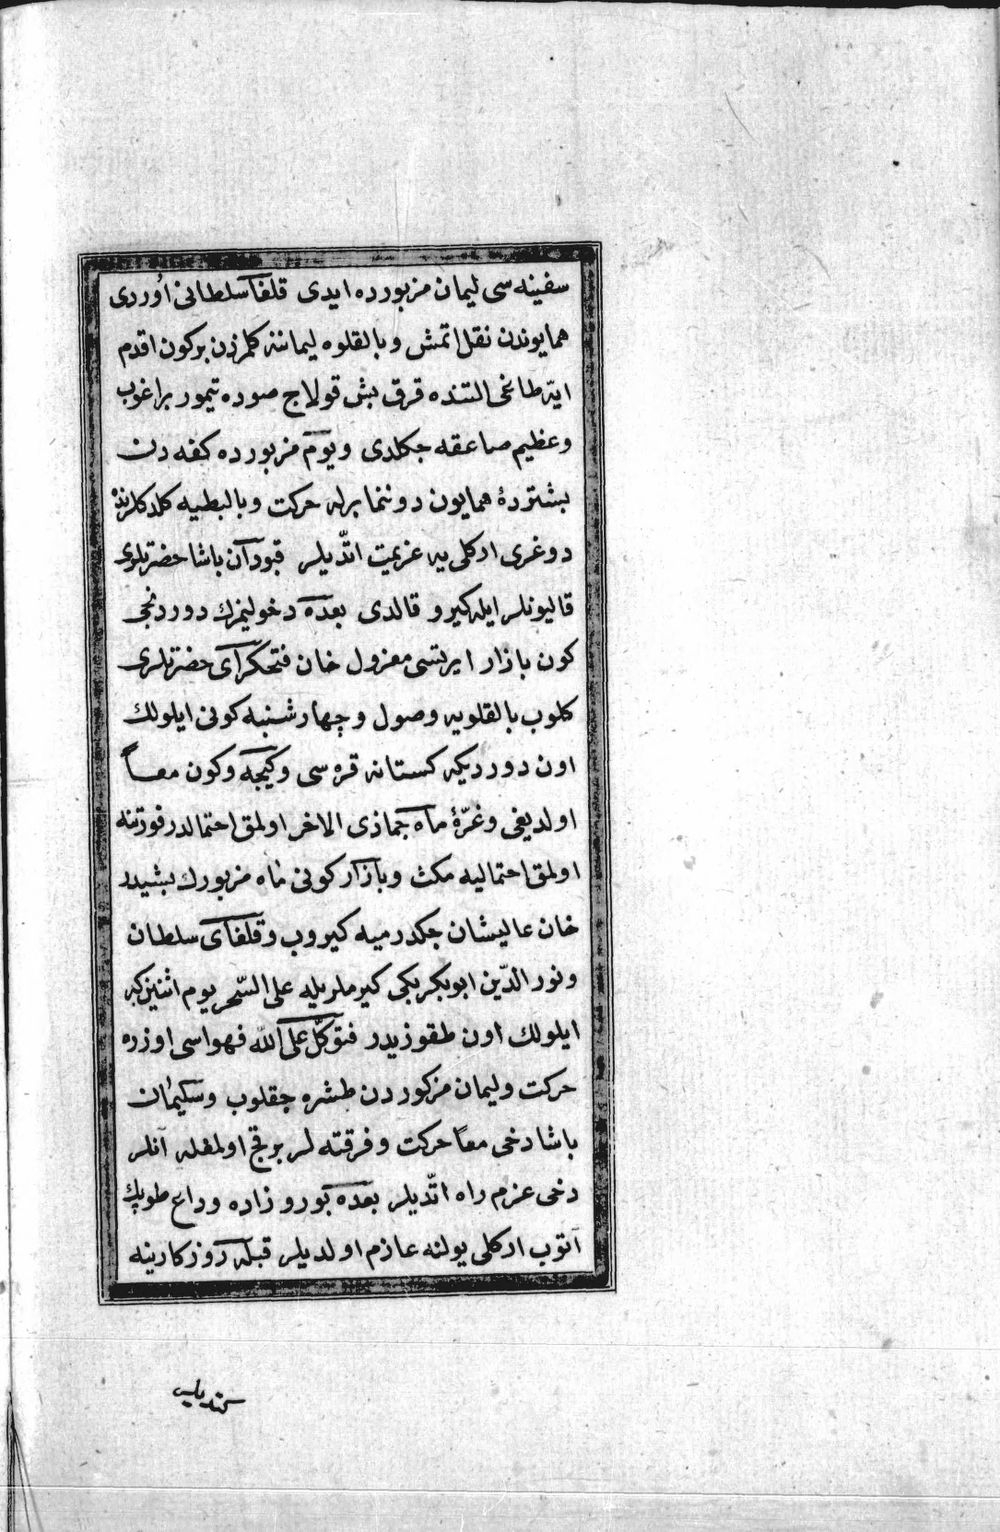 سفینه سی لیمان مزبورده ایدی قلغا سلطانی اوردی
همایوندن نقل اتمش وبالقلوه لیماننه کلمزدن برکون اقدم
ایه طاغی التنده قرق بش قولاج صوده تیمور براغوب
وعظیم صاعقه چکلدی ویوم مزبورده کفه دن
بشتردهٔ همایون دوننما برله حرکت وبالبطیه کلدکلرنده
دوغری ارکلی یه عزیمت اتدیلر قپودان پاشا حضرتلری
قالیونلر ایله کیرو قالدی بعده دخولیمزك دوردنجی
کون بازار ایرتسی معزول خان فتحکرای حضرتلری
کلوب بالقلویه وصول وچهارشنبه کونی ایلولك
اون دوردیکه کستانه قره سی وکیجه وکون معاً
اولدیغی وغرّهٔ ماه جماذی الاخر اولمق احتمالدر فورتنه
اولمق احتمالیه مکث وبازار کونی ماه مزبورك بشیدر
خان عالیشان چکدرمیه کیروب وقلغای سلطان
ونور الدّین ابوبکر بکی کیرملریله علی السّحر یوم اثنین که
ایلولك اون طقوزیدر فتوکّل علی الله فهواسی اوزره
حرکت ولیمان مزکوردن طشره چقلوب وسلیمان
پاشا دخی معاً حرکت وفرقته لر برقچ اولمغله آنلر
دخی عزم راه اتّدیلر بعده بورو زاده وداع طوپك
آتوب ارکلی یولنه عازم اولدیلر قبله روزکارینه